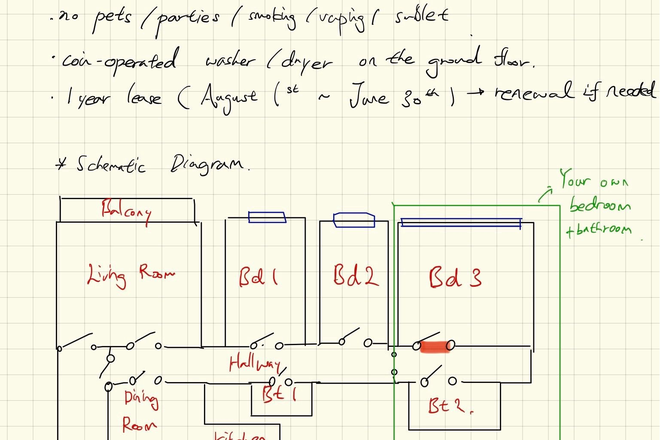 . no pets / parties / smoking / vaping / sublet
· coin-operated washer / dryer on the ground floor.
· 1 year lease ( August 1st ~ June 30th ) → renewal if needed
* Schematic Diagram.
Your own
bedroom
+bathroom.
Balcony
Living Room
Bd 1
Bd 2
Bd 3
Hallway
Dining
Room
Bt 1
Bt 2.
kitchen